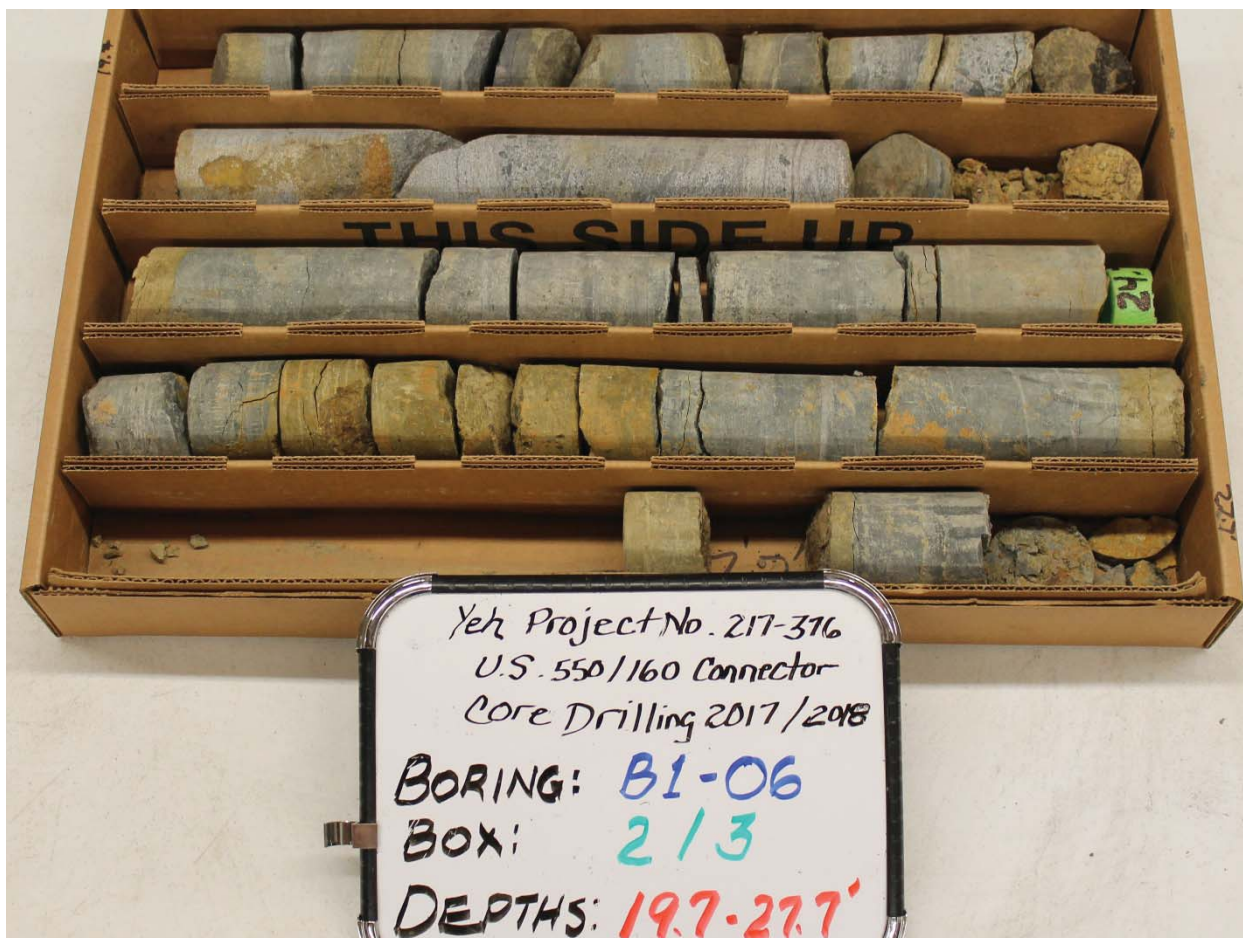 THIS SIDE UP
24'
Yeh Project No. 217-376
U.S. 550/160 Connector
Core Drilling 2017/2018
BORING: B1-06
BOX: 2/3
DEPTHS: 19.7-27.7'